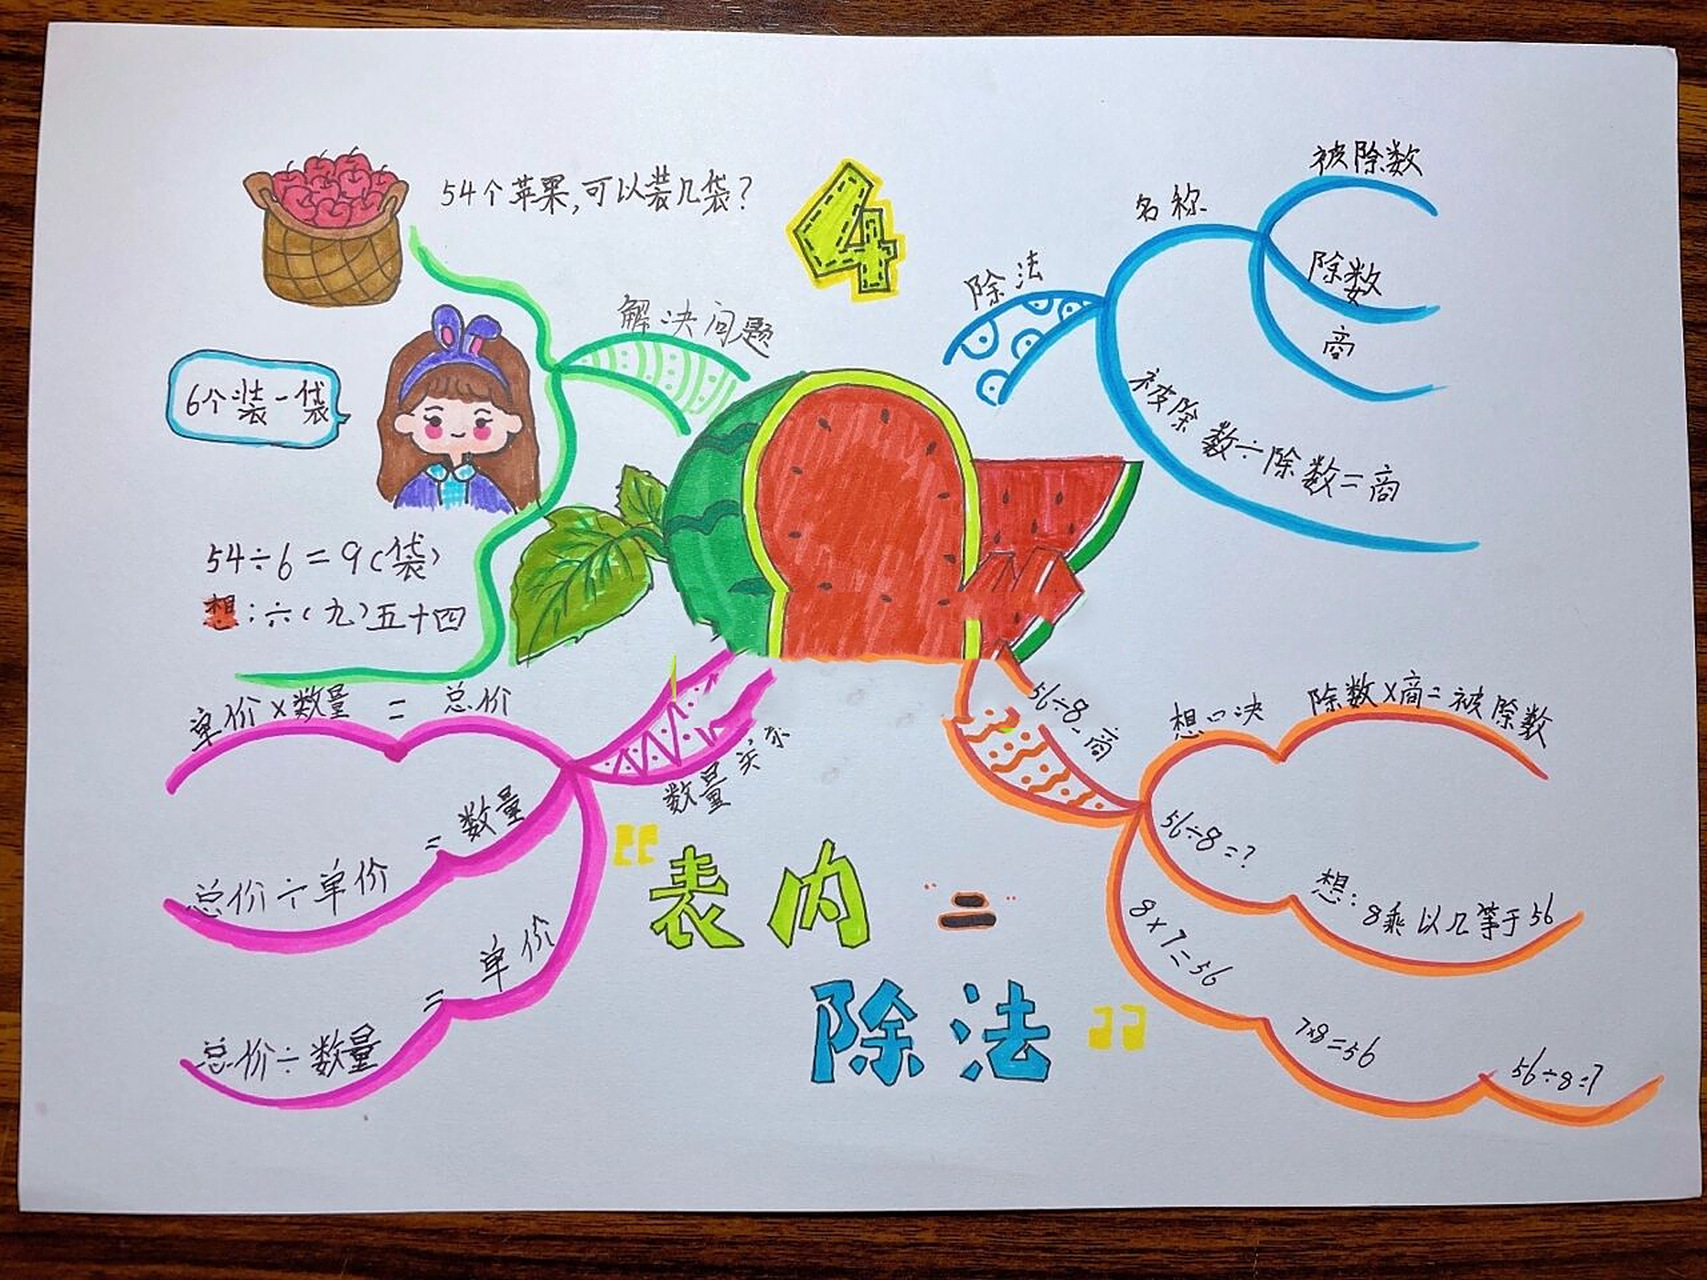 54个苹果,可以装几袋?
4
解决问题
6个装一袋
54÷6=9(袋)
想:六(九)五十四
除法
名称
被除数
除数
商
被除数÷除数=商
单价×数量 = 总价
总价÷单价 = 数量
总价÷数量 = 单价
数量关系
56÷8 商
想口决
除数×商=被除数
56÷8=?
想:8乘以几等于56
8×7=56
7×8=56
56÷8=7
“表内二
除法”